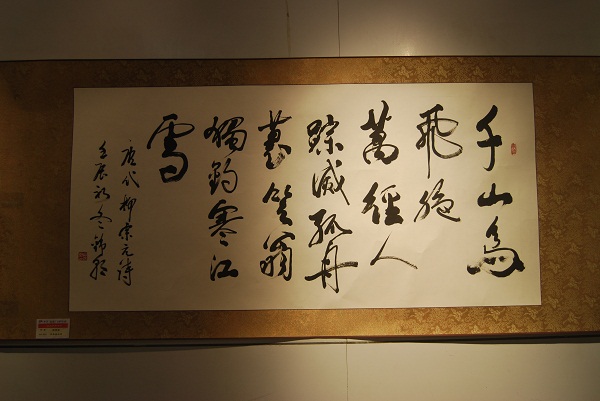 千山鳥
飛絕
萬徑人
踪滅孤舟
蓑笠翁
獨釣寒江
雪
唐代柳宗元詩
壬辰初冬